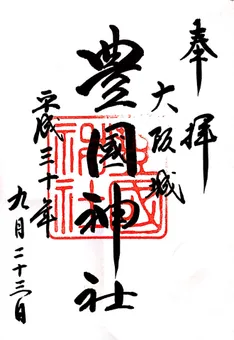 奉拝
大阪城
豊國神社
平成三十年
九月二十三日